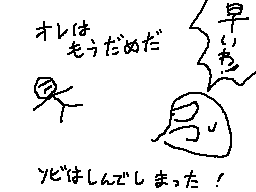 オレは
もうだめだ
早いわ!
ソビはしんでしまった!